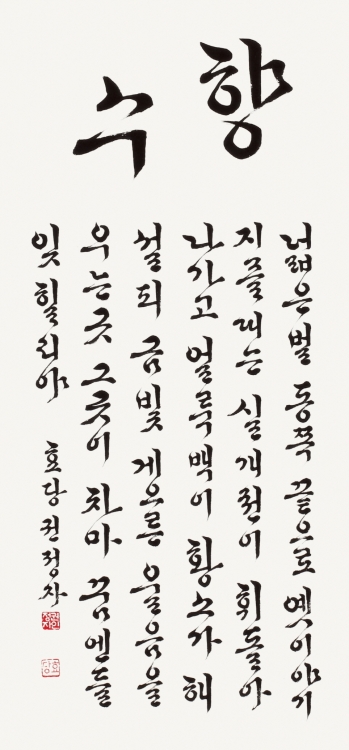 향수
넓은벌 동쪽 끝으로 옛이야기
지즐대는 실개천이 휘돌아
나가고 얼룩백이 황소가 해
설피 금빛 게으른 울음을
우는곳 그곳이 차마 꿈엔들
잊힐리야
효당 권정자